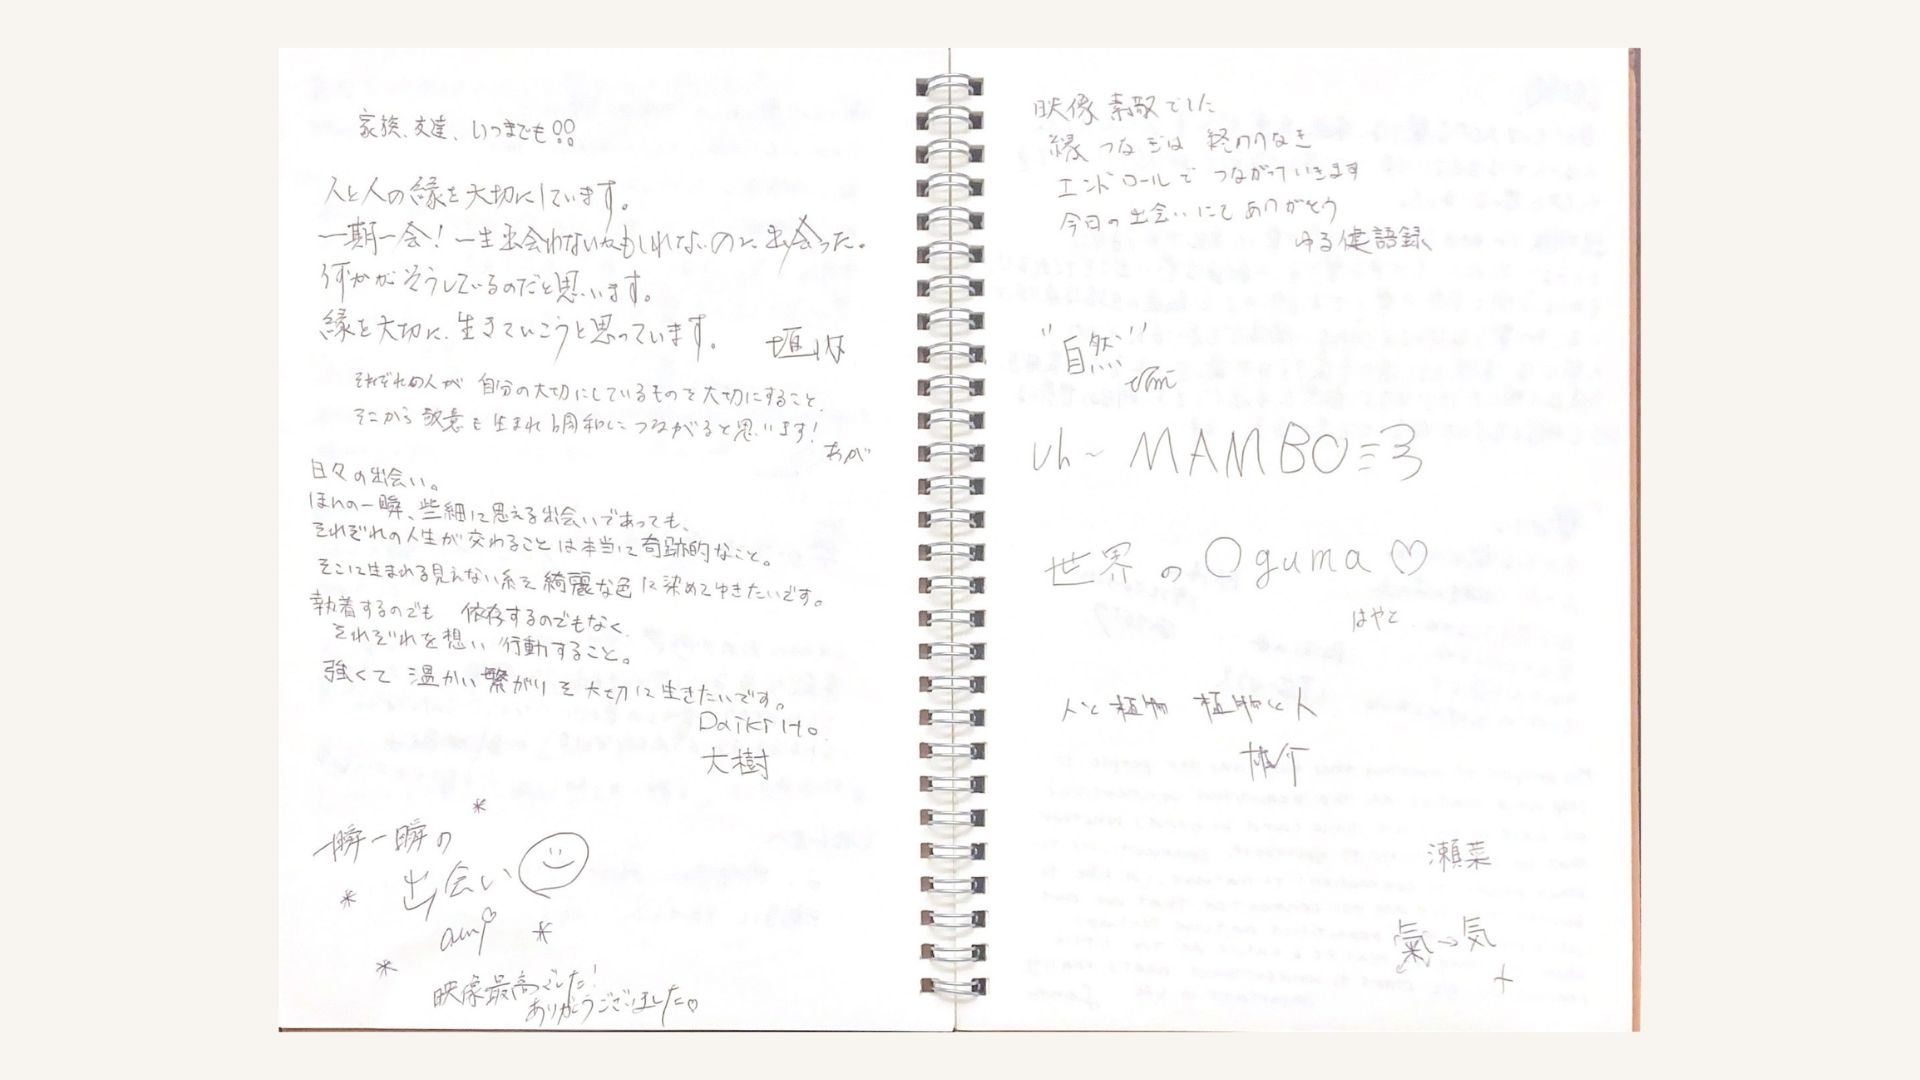 家族、友達、いつまでも!!
人と人の縁を大切にしています。
一期一会!一生出会わないかもしれないのに出会った。
何かがそうしているのだと思います。
縁を大切に、生きていこうと思っています。
それぞれの人が 自分の大切にしているものを大切にすること、
そこから敬意も生まれ調和につながると思います!
あが
日々の出会い。
ほんの一瞬、些細に思える出会いであっても、
それぞれの人生が交わることは本当に奇跡的なこと。
そこに生まれる見えない糸を綺麗な色に染めてゆきたいです。
執着するのでも 依存するのでもなく、
それぞれを想い 行動すること。
強くて温かい繋がりを大切に生きたいです。
大樹
一瞬一瞬の
出会い
ami
映像最高でした!
ありがとうございました
映像 素敵でした
縁つなぎは 終わりなき
エンドロールで つながっていきます
今日の出会いにて ありがとう
ゆる健語録
"自然"
Uh~ MAMBO
世界の Oguma ♡
はやと
人と植物 植物と人
雄介
瀬菜
氣→気